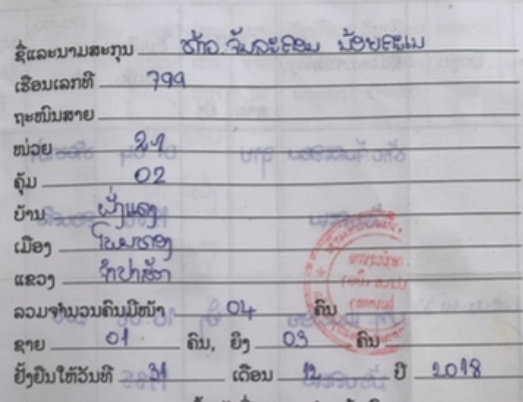 ຊື່ແລະນາມສະກຸນ ທ້າວ ຈັນລະຄອນ ນ້ອຍຄະແມ
ເຮືອນເລກທີ 799
ຖະໜົນສາຍ
ໜ່ວຍ 21
ຄຸ້ມ 02
ບ້ານ ຝັ່ງແດງ
ເມືອງ ໂພນທອງ
ແຂວງ ຈຳປາສັກ
ລວມຈຳນວນຄົນມີໜ້າ 04 ຄົນ
ຊາຍ 01 ຄົນ, ຍິງ 03 ຄົນ
ຢັ້ງຢືນໃຫ້ວັນທີ 31 ເດືອນ 12 ປີ 2018